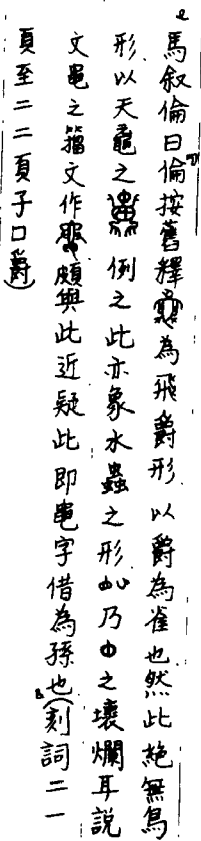 馬叙倫曰倫按舊釋為飛爵形以爵為雀也然此絕無鳥
形以天黽之例之此亦象水蟲之形乃之壞爛耳說
文黽之籀文作頗與此近疑此即黽字借為孫也（刻詞二一
頁至二二頁子口爵）